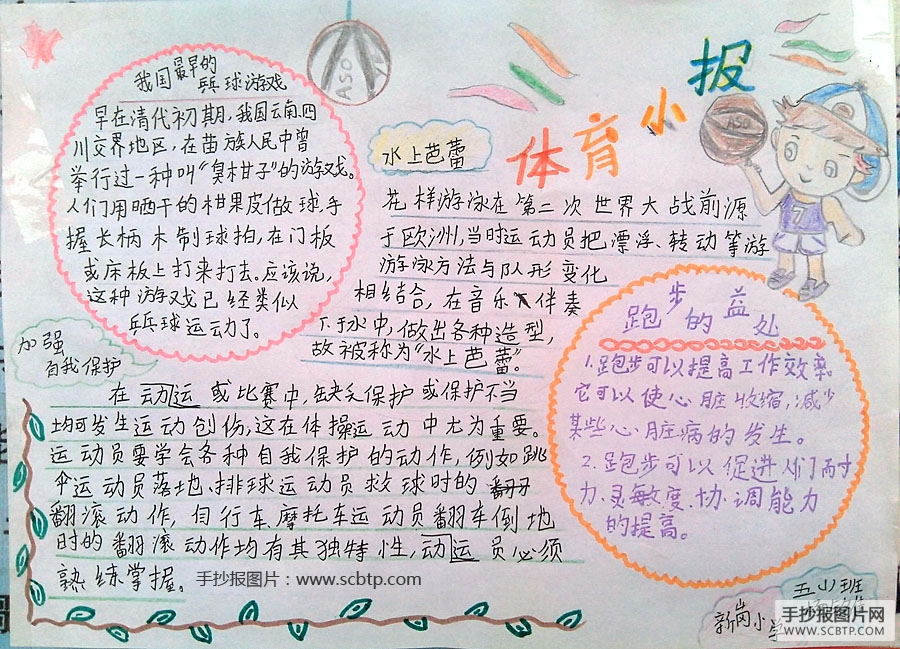 体育小报
我国最早的
乒球游戏
早在清代初期,我国云南、四
川交界地区,在苗族人民中曾
举行过一种叫“臭柑子”的游戏。
人们用晒干的柑果皮做球,手
握长柄木制球拍,在门板
或床板上打来打去。应该说,
这种游戏已经类似
乒乓球运动了。
ASO
ASO
水上芭蕾
花样游泳在第二次世界大战前源
于欧洲,当时运动员把漂浮、转动等游
游泳方法与队形变化
相结合,在音乐伴奏
下于水中,做出各种造型,
故被称为“水上芭蕾”。
7
跑步的益处
1.跑步可以提高工作效率。
它可以使心脏收缩,减少
某些心脏病的发生。
2.跑步可以促进人们耐
力、灵敏度协调能力
的提高。
加强
自我保护
在动运或比赛中,缺乏保护或保护不当
均可发生运动创伤,这在体操运动中尤为重要。
运动员要学会各种自我保护的动作,例如跳
伞运动员落地、排球运动员救球时的
翻滚动作,自行车、摩托车运动员翻车倒地
时的翻滚动作均有其独特性,动运员必须
熟练掌握。
手抄报图片:www.scbtp.com
五(1)班
新岗小学
手抄报图片网
WWW.SCBTP.COM